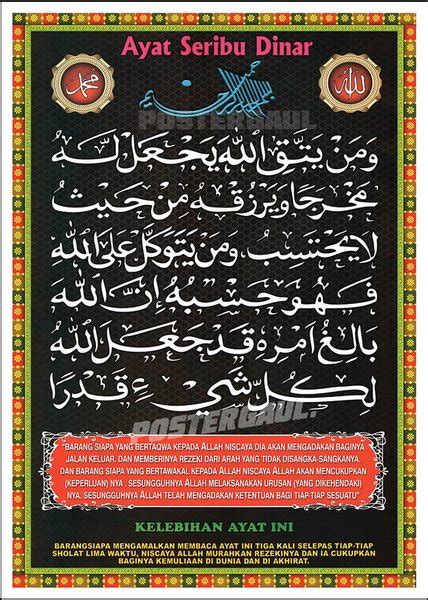 Ayat Seribu Dinar
محمد
بسم الله الرحمن الرحيم
الله
POSTERGAUL
وَمَنْ يَتَّقِ اللّٰهَ يَجْعَلْ لَهُ
مَخْرَجًا وَيَرْزُقْهُ مِنْ حَيْثُ
لَا يَحْتَسِبُ وَمَنْ يَتَوَكَّلْ عَلَى اللّٰهِ
فَهُوَ حَسْبُهُ إِنَّ اللّٰهَ
بَالِغُ أَمْرِهِ قَدْ جَعَلَ اللّٰهُ
لِكُلِّ شَيْءٍ قَدْرًا
POSTERGAUL.
"BARANG SIAPA YANG BERTAQWA KEPADA ALLAH NISCAYA DIA AKAN MENGADAKAN BAGINYA
JALAN KELUAR. DAN MEMBERINYA REZEKI DARI ARAH YANG TIDAK DISANGKA-SANGKANYA.
DAN BARANG SIAPA YANG BERTAWAKAL KEPADA ALLAH NISCAYA ALLAH AKAN MENCUKUPKAN
(KEPERLUAN) NYA . SESUNGGUHNYA ALLAH MELAKSANAKAN URUSAN (YANG DIKEHENDAKI)
NYA. SESUNGGUHNYA ALLAH TELAH MENGADAKAN KETENTUAN BAGI TIAP-TIAP SESUATU"
KELEBIHAN AYAT INI
BARANGSIAPA MENGAMALKAN MEMBACA AYAT INI TIGA KALI SELEPAS TIAP-TIAP
SHOLAT LIMA WAKTU, NISCAYA ALLAH MURAHKAN REZEKINYA DAN IA CUKUPKAN
BAGINYA KEMULIAAN DI DUNIA DAN DI AKHIRAT.